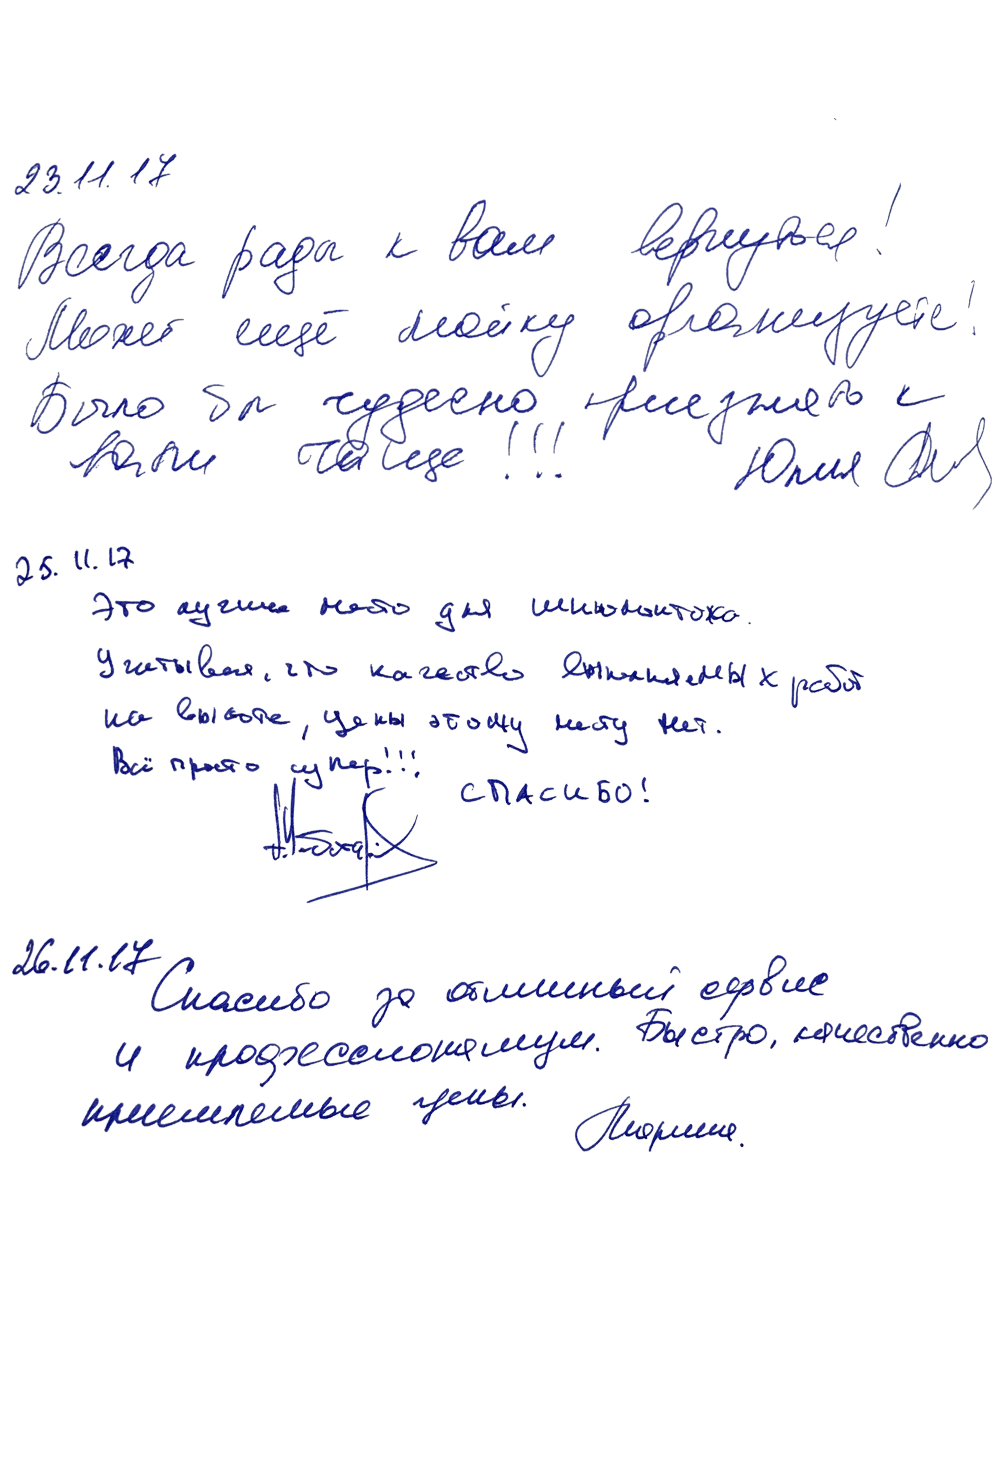 23.11.17
Всегда рады к вам вернуться!
Может ещё мойку организуете!
Было бы чудесно приезжать к
вам чаще!!! Юлия
25.11.17
Это лучшее место для шиномонтажа.
Учитывая, что качество выполняемых работ
на высоте, цены этому месту нет.
Всё просто супер!!!
СПАСИБО!
26.11.17
Спасибо за отличный сервис
и профессионализм. Быстро, качественно
приемлемые цены.
Марина.